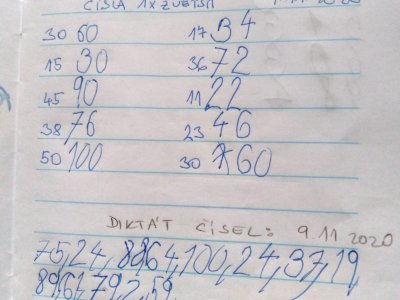 ČÍSLA 1X ZVĚTŠI 2020
30 60 17 34
15 30 36 72
45 90 11 22
38 76 23 46
50 100 30 60
DIKTÁT ČÍSEL: 9.11 2020
75,24, 64,100,24,37,19
89,61,79,2,59